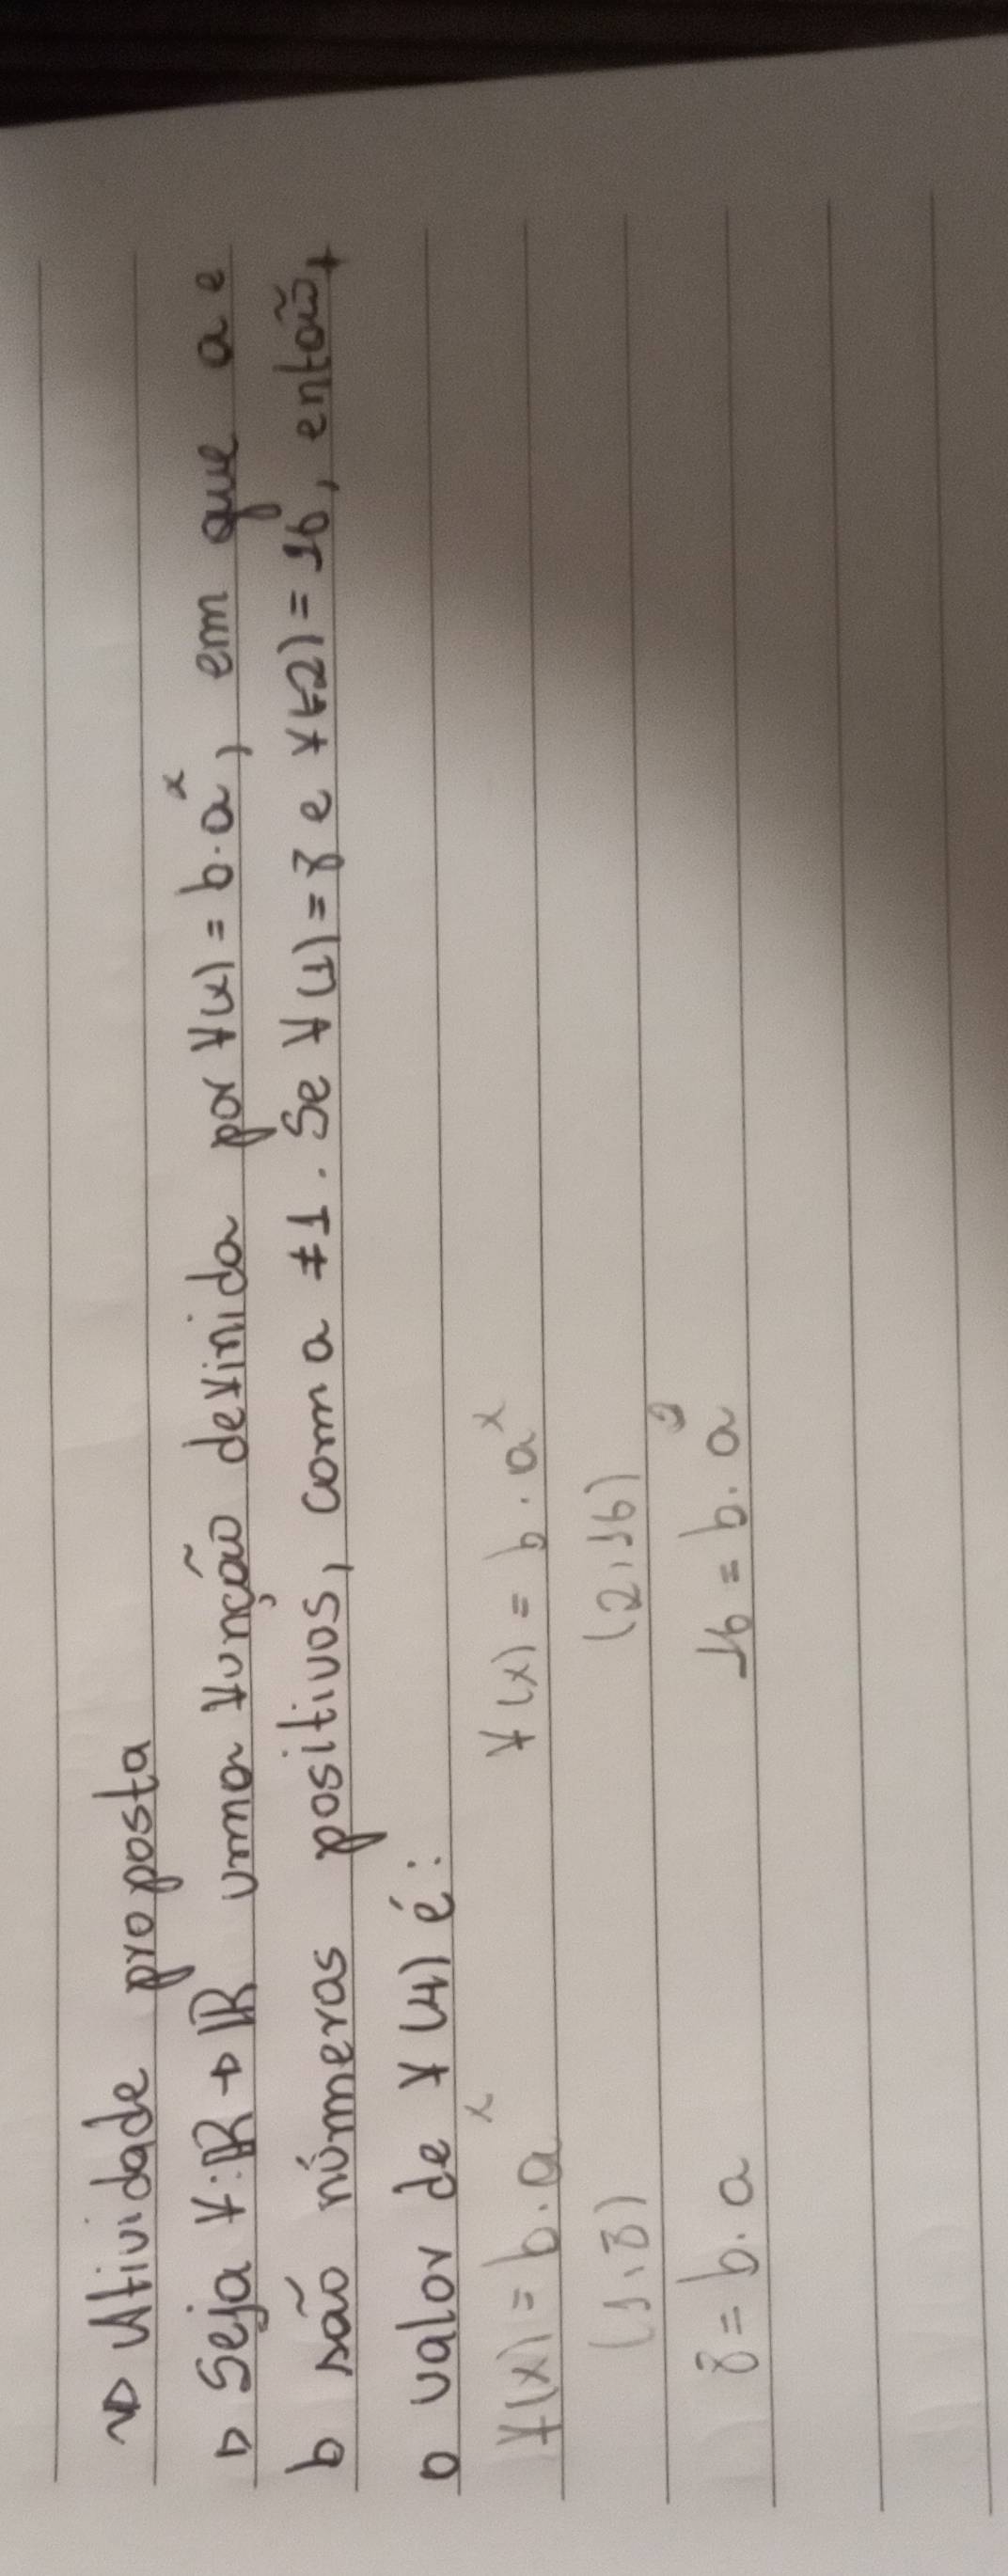 Atividade proposta
Seja f: ℝ → ℝ uma função definida por f(x) = b · aˣ, em que a e
b são números positivos, com a ≠ 1. Se f(1) = 8 e f(2) = 16, então,
o valor de f(4) é:
f(x) = b · aˣ f(x) = b · aˣ
(1, 8) (2, 16)
8 = b · a 16 = b · a²